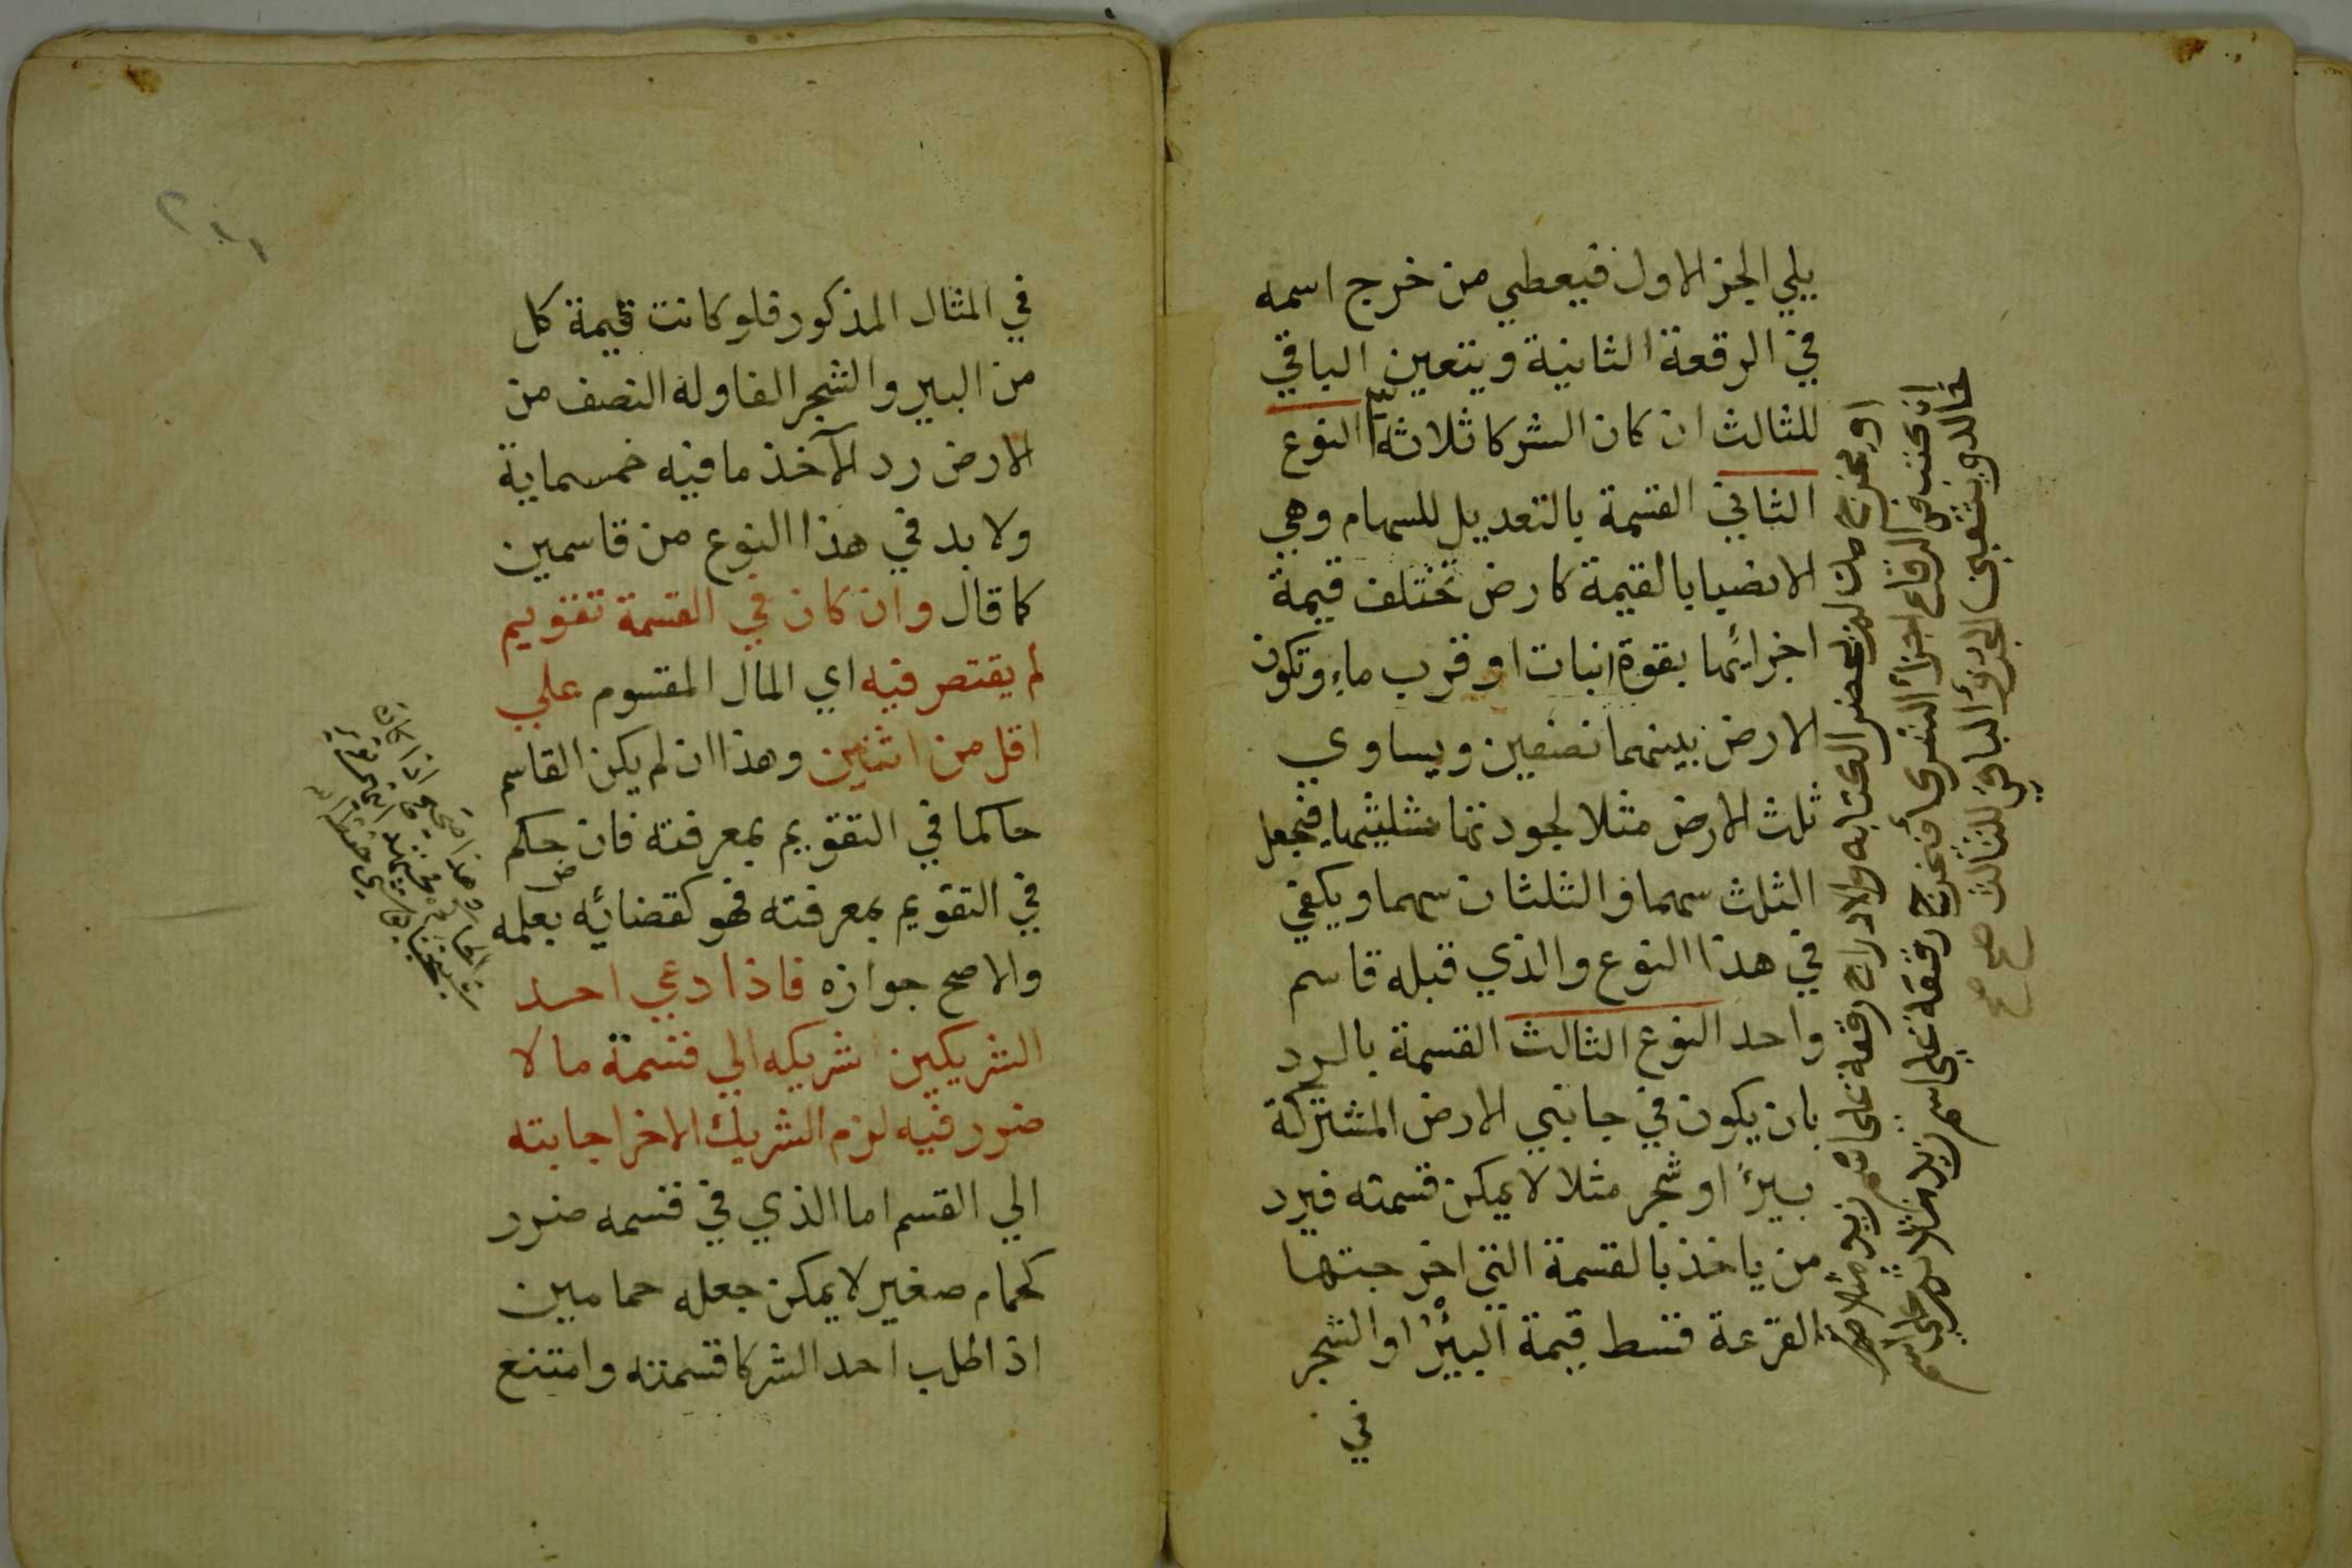 يلي الجز الاول فيعطي من خرج اسمه
في الرقعة الثانية ويتعين الباقي
للثالث ان كان الشركا ثلاثة النوع
الثاني القسمة بالتعديل للسهام وهي
الانصبا بالقيمة كارض تختلف قيمة
اجزائها بقوة انبات او قرب ماء وتكون
الارض بينهما نصفين ويساوي
ثلث الارض مثلا لجودتها مثليثها فيجعل
الثلث سهما والثلثان سهما ويكفي
في هذا النوع والذي قبله قاسم
واحد النوع الثالث القسمة بالرد
بان يكون في جانبي الارض المشتركة
بيرًا او شجر مثلا لا يمكن قسمته فيرد
من ياخذ بالقسمة التي اخرجتها
القرعة قسط قيمة البئر او الشجر
في
او يخرج من لم يحضر الكتابة والادراج رقعة على اسم زيد مثلا
ان كتب في الرقاع اجزأ الشركأ فيخرج رقعة على اسم زيد مثلا ثم على اسم
خالد ويتعين الجزؤ الباقي للثالث صح صح
٢١١
في المثال المذكور فلو كانت قيمة كل
من البير والشجر الفا وله النصف من
الارض رد الآخذ ما فيه خمسماية
ولا بد في هذا النوع من قاسمين
كما قال وان كان في القسمة تقويم
لم يقتصر فيه اي المال المقسوم علي
اقل من اثنين وهذا ان لم يكن القاسم
حاكما في التقويم بمعرفته فان حكم
في التقويم بمعرفته فهو كقضائه بعلمه
والاصح جوازه فاذا دعي احد
الشريكين شريكه الي قسمة ما لا
ضرر فيه لزم الشريك الاخر اجابته
الي القسم اما الذي في قسمه ضرر
كحمام صغير لا يمكن جعله حمامين
اذا طلب احد الشركا قسمته وامتنع